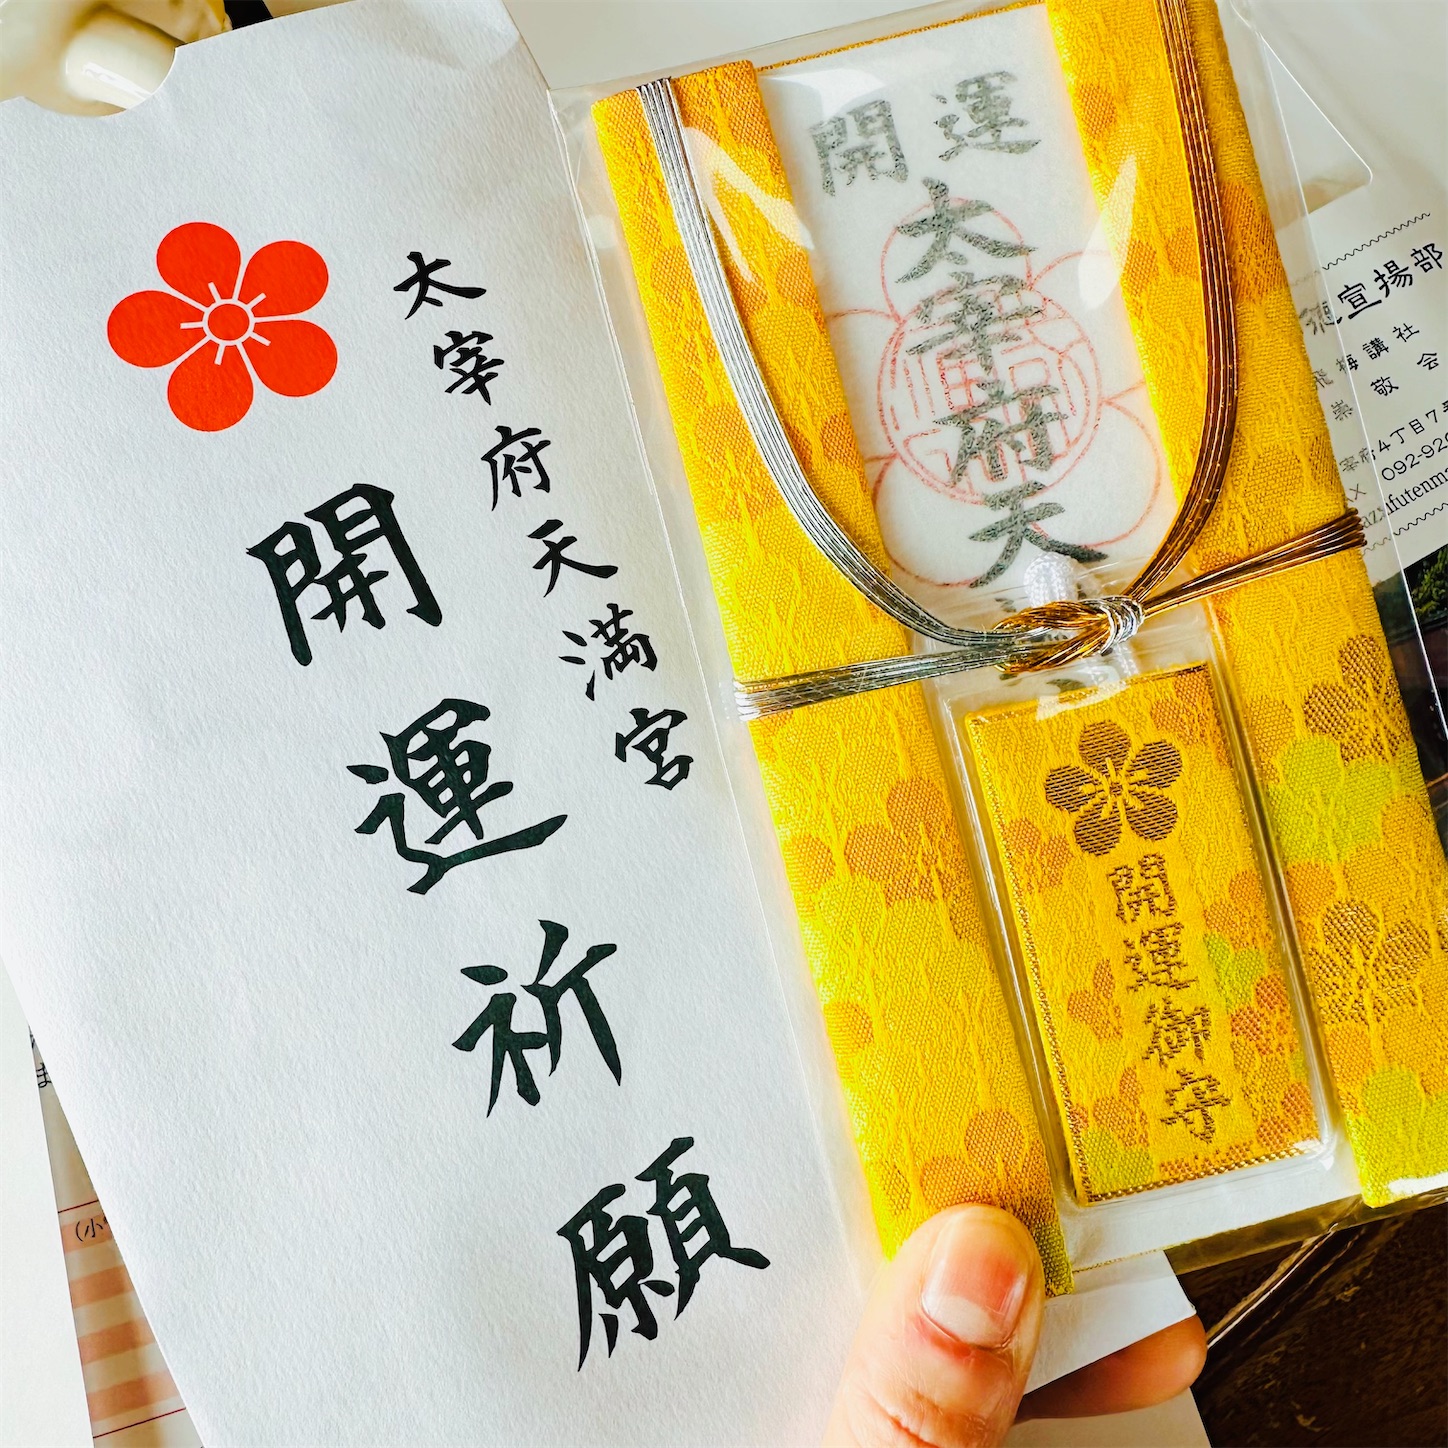 太宰府天満宮
開運祈願
開運
太宰府天
開運御守
宣揚部
飛梅講社
崇敬会
宰府4丁目7
092-92
AX
zaifutenma
(小